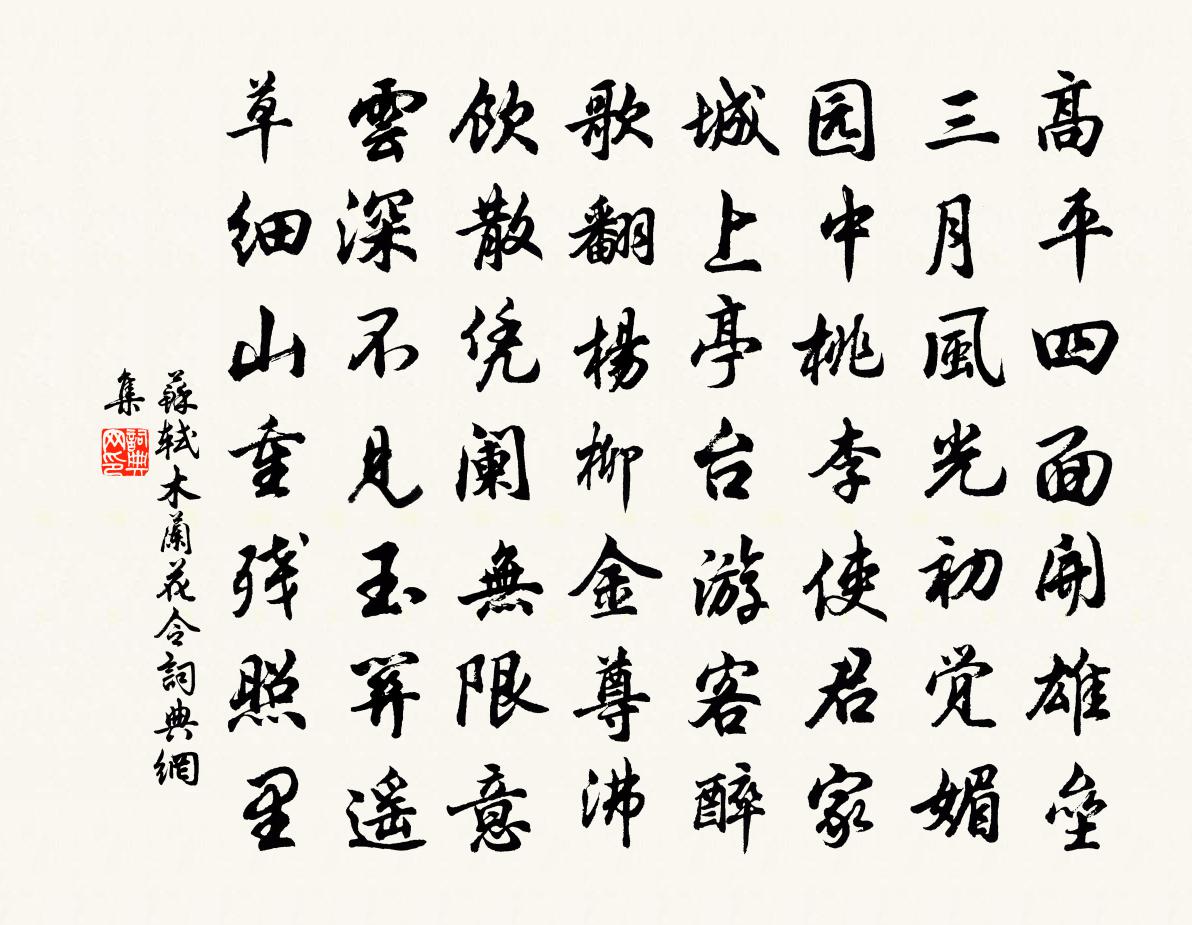 高平四面開雄壘
三月風光初觉媚
园中桃李使君家
城上亭台游客醉
歌翻楊柳金尊沸
飲散凭阑無限意
雲深不見玉関遥
草细山重残照里
蘇軾木蘭花令詞典網
集
詞典网印